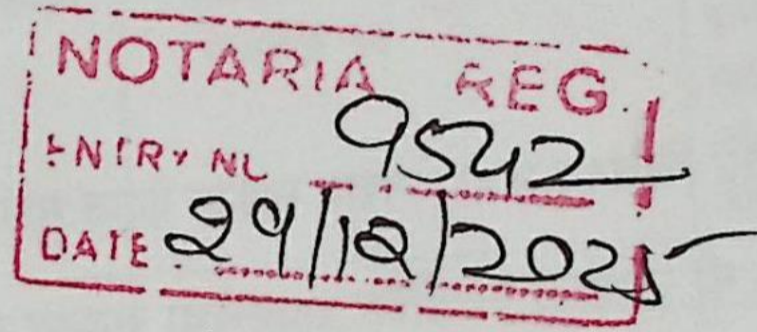 NOTARIA REG.
ENTRY NO 9542
DATE 29/12/2025